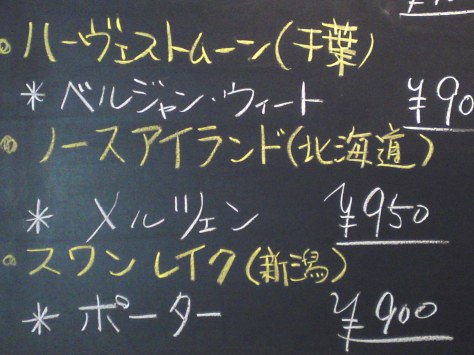 • ハーヴェストムーン(千葉)
* ベルジャン・ウィート ¥90
• ノースアイランド(北海道)
* メルツェン ¥950
• スワンレイク(新潟)
* ポーター ¥900